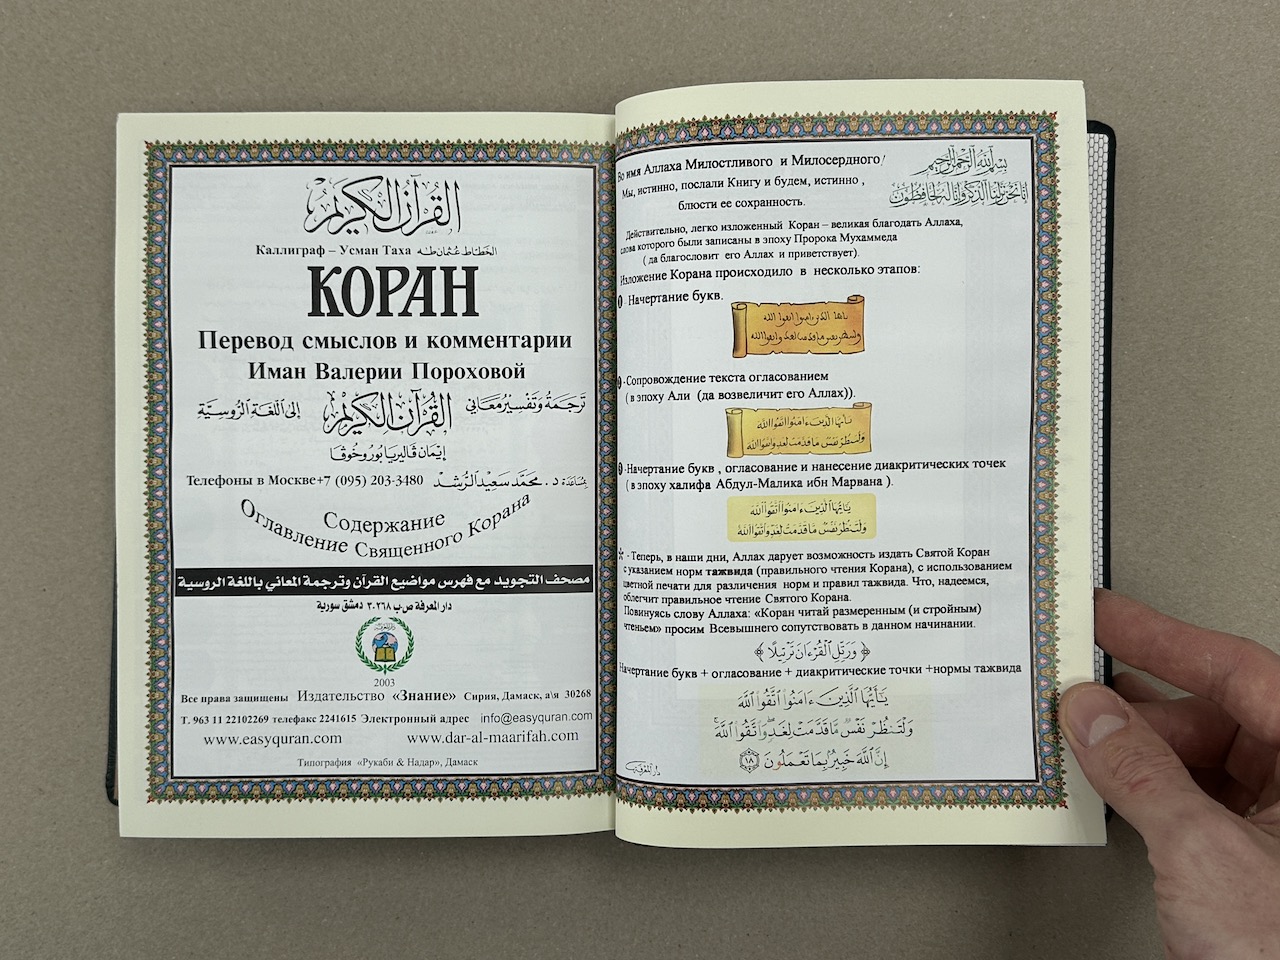 القرآن الكريم
Каллиграф – Усман Таха الخطاط عثمان طه
КОРАН
Перевод смыслов и комментарии
Иман Валерии Пороховой
ترجمة وتفسير معاني القرآن الكريم إلى اللغة الروسية
إيمان ڤاليريا بوروخوڤا
Телефоны в Москве+7 (095) 203-3480 بمساعدة د. محمد سعيد الرشد
Содержание
Оглавление Священного Корана
مصحف التجويد مع فهرس مواضيع القرآن وترجمة المعاني باللغة الروسية
دار المعرفة ص.ب ٣٠٢٦٨ دمشق سورية
2003
Все права защищены Издательство «Знание» Сирия, Дамаск, а\я 30268
Т. 963 11 22102269 телефакс 2241615 Электронный адрес info@easyquran.com
www.easyquran.com www.dar-al-maarifah.com
Типография «Рукаби & Надар», Дамаск
Во имя Аллаха Милостливого и Милосердного!
بسم الله الرحمن الرحيم
Мы, истинно, послали Книгу и будем, истинно ,
إنا نحن نزلنا الذكر وإنا له لحافظون
блюсти ее сохранность.
Действительно, легко изложенный Коран – великая благодать Аллаха,
слова которого были записаны в эпоху Пророка Мухаммеда
( да благословит его Аллах и приветствует).
Изложение Корана происходило в несколько этапов:
❶ - Начертание букв.
❷ -Сопровождение текста огласованием
( в эпоху Али (да возвеличит его Аллах)).
يَٰٓأَيُّهَا ٱلَّذِينَ ءَامَنُوا۟ ٱتَّقُوا۟ ٱللَّهَ
وَلْتَنظُرْ نَفْسٌ مَّا قَدَّمَتْ لِغَدٍ وَٱتَّقُوا۟ ٱللَّهَ
❸ -Начертание букв , огласование и нанесение диакритических точек
( в эпоху халифа Абдул-Малика ибн Марвана ).
يَٰٓأَيُّهَا ٱلَّذِينَ ءَامَنُوا۟ ٱتَّقُوا۟ ٱللَّهَ
وَلْتَنظُرْ نَفْسٌ مَّا قَدَّمَتْ لِغَدٍ وَٱتَّقُوا۟ ٱللَّهَ
* - Теперь, в наши дни, Аллах дарует возможность издать Святой Коран
с указанием норм тажвида (правильного чтения Корана), с использованием
цветной печати для различения норм и правил тажвида. Что, надеемся,
облегчит правильное чтение Святого Корана.
Повинуясь слову Аллаха: «Коран читай размеренным (и стройным)
чтеньем» просим Всевышнего сопутствовать в данном начинании.
﴿ وَرَتِّلِ ٱلْقُرْءَانَ تَرْتِيلًا ﴾
Начертание букв + огласование + диакритические точки +нормы тажвида
يَٰٓأَيُّهَا ٱلَّذِينَ ءَامَنُوا۟ ٱتَّقُوا۟ ٱللَّهَ
وَلْتَنظُرْ نَفْسٌ مَّا قَدَّمَتْ لِغَدٍ وَٱتَّقُوا۟ ٱللَّهَ
إِنَّ ٱللَّهَ خَبِيرٌۢ بِمَا تَعْمَلُونَ ١٨
دار المعرفة